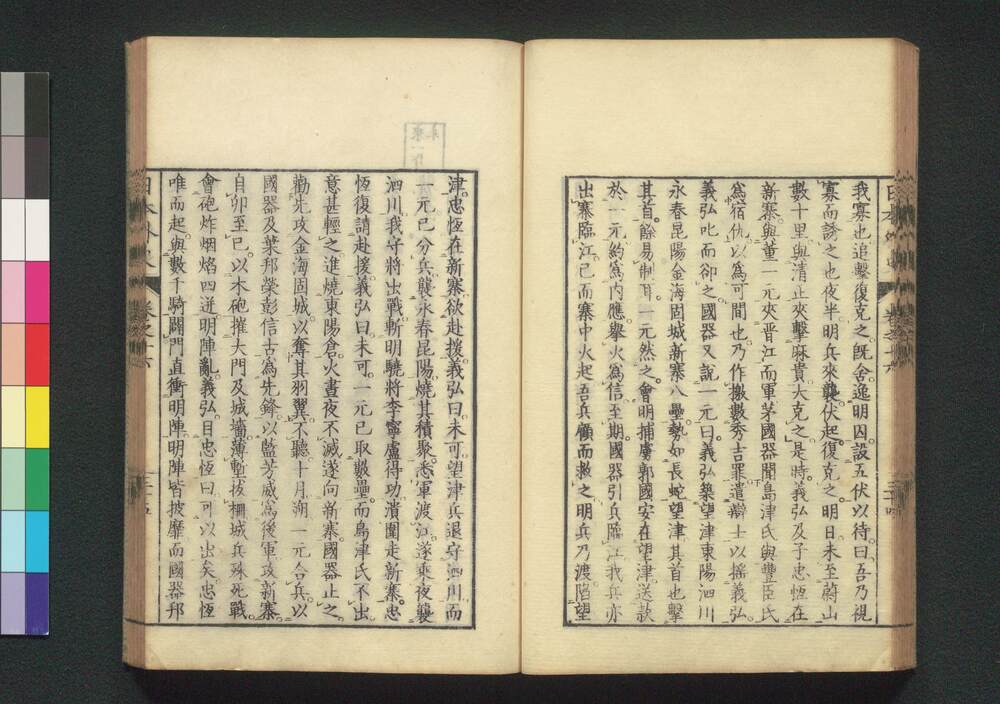 我寡也追擊復克之既舍逸明囚設五伏以待曰吾乃視
寡而誘之也夜半明兵來襲伏起復克之明日未至蔚山
數十里與清正夾擊麻貴大克之是時義弘及子忠恆在
新寨與董一元夾晋江而軍茅國器聞島津氏與豐臣氏
爲宿仇以爲可間也乃作檄數秀吉罪遣辯士以搖義弘
義弘叱而卻之國器又說一元曰義弘築望津東陽泗川
永春昆陽金海固城新寨八壘勢如長蛇望津其首也擊
其首餘易制耳一元然之會明捕虜郭國安在望津送款
於一元約爲内應擧火爲信至期國器引兵臨江我兵亦
出寨臨江已而寨中火起吾兵顧而救之明兵乃渡陷望
津忠恆在新寨欲赴援義弘曰未可望津兵退守泗川而
一元已分兵襲永春昆陽燒其積聚悉軍渡江遂乘夜襲
泗川我守將出戰斬明驍將李寧盧得功潰圍走新寨忠
恆復請赴援義弘曰未可一元已取數壘而島津氏不出
意甚輕之進燒東陽倉火晝夜不滅遂向新寨國器止之
勸先攻金海固城以奪其羽翼不聽十月朔一元合兵以
國器及葉邦榮彭信古爲先鋒以藍芳威爲後軍攻新寨
自卯至巳以木砲摧大門及城墻薄塹拔柵城兵殊死戰
會砲炸烟焰四迸明陣亂義弘目忠恆曰可以出矣忠恆
唯而起與數千騎闢門直衝明陣明陣皆披靡而國器邦